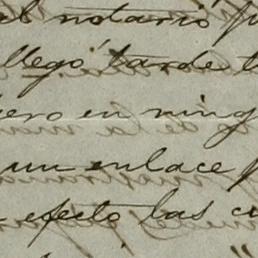 el notario
llegó tarde
pero en ning
un enlace
efecto las